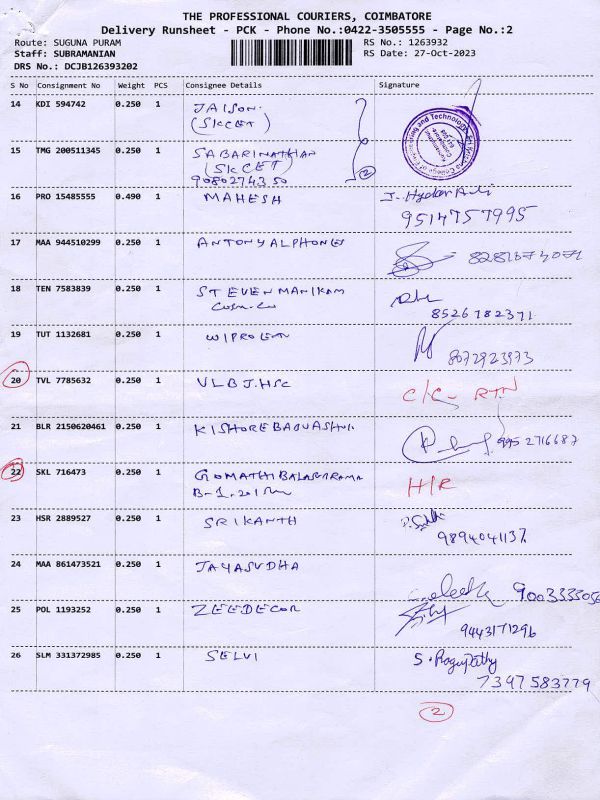 THE PROFESSIONAL COURIERS, COIMBATORE
Delivery Runsheet - PCK - Phone No.:0422-3505555 - Page No.:2
Route: SUGUNA PURAM
RS No.: 1263932
Staff: SUBRAMANIAN
RS Date: 27-Oct-2023
DRS No.: DCJB126393202
S No Consignment No Weight PCS Consignee Details Signature
14 KDI 594742 0.250 1 JAISON.
(SKCET)
15 TMG 200511345 0.250 1 SABARINATHAN
(SKCET)
9080274350
2
16 PRO 15485555 0.490 1 MAHESH J. Hyder Ali
9514757995
17 MAA 944510299 0.250 1 ANTONYALPHONES
18 TEN 7583839 0.250 1 STEVENMANIKAM
8526782371
19 TUT 1132681 0.250 1 WIPRO
8072923973
20 TVL 7785632 0.250 1 VLBJ.HSC C/C- RTN
21 BLR 2150620461 0.250 1 KISHORE
9952716687
22 SKL 716473 0.250 1 GOMATHI H/R
23 HSR 2889527 0.250 1 SRIKANTH
9894041137
24 MAA 861473521 0.250 1 JAYASUDHA
9003333056
25 POL 1193252 0.250 1 ZEEDECOR
9443171296
26 SLM 331372985 0.250 1 SELVI S. Ragupathy
7397583779
2